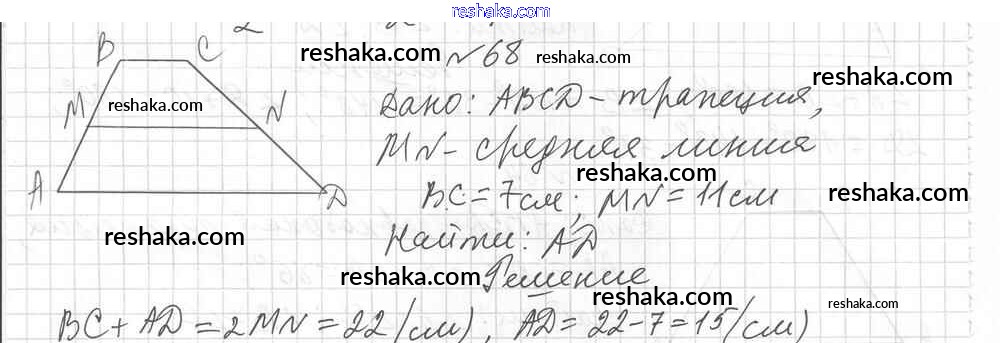 reshaka.com
B C
reshaka.com №68 reshaka.com
reshaka.com
M reshaka.com N
Дано: ABCD - трапеция,
MN - средняя линия
reshaka.com
A D
BC = 7 см; MN = 11 см reshaka.com
reshaka.com
Найти: AD
reshaka.com Решение
reshaka.com reshaka.com
BC + AD = 2MN = 22 (см), AD = 22 - 7 = 15 (см)